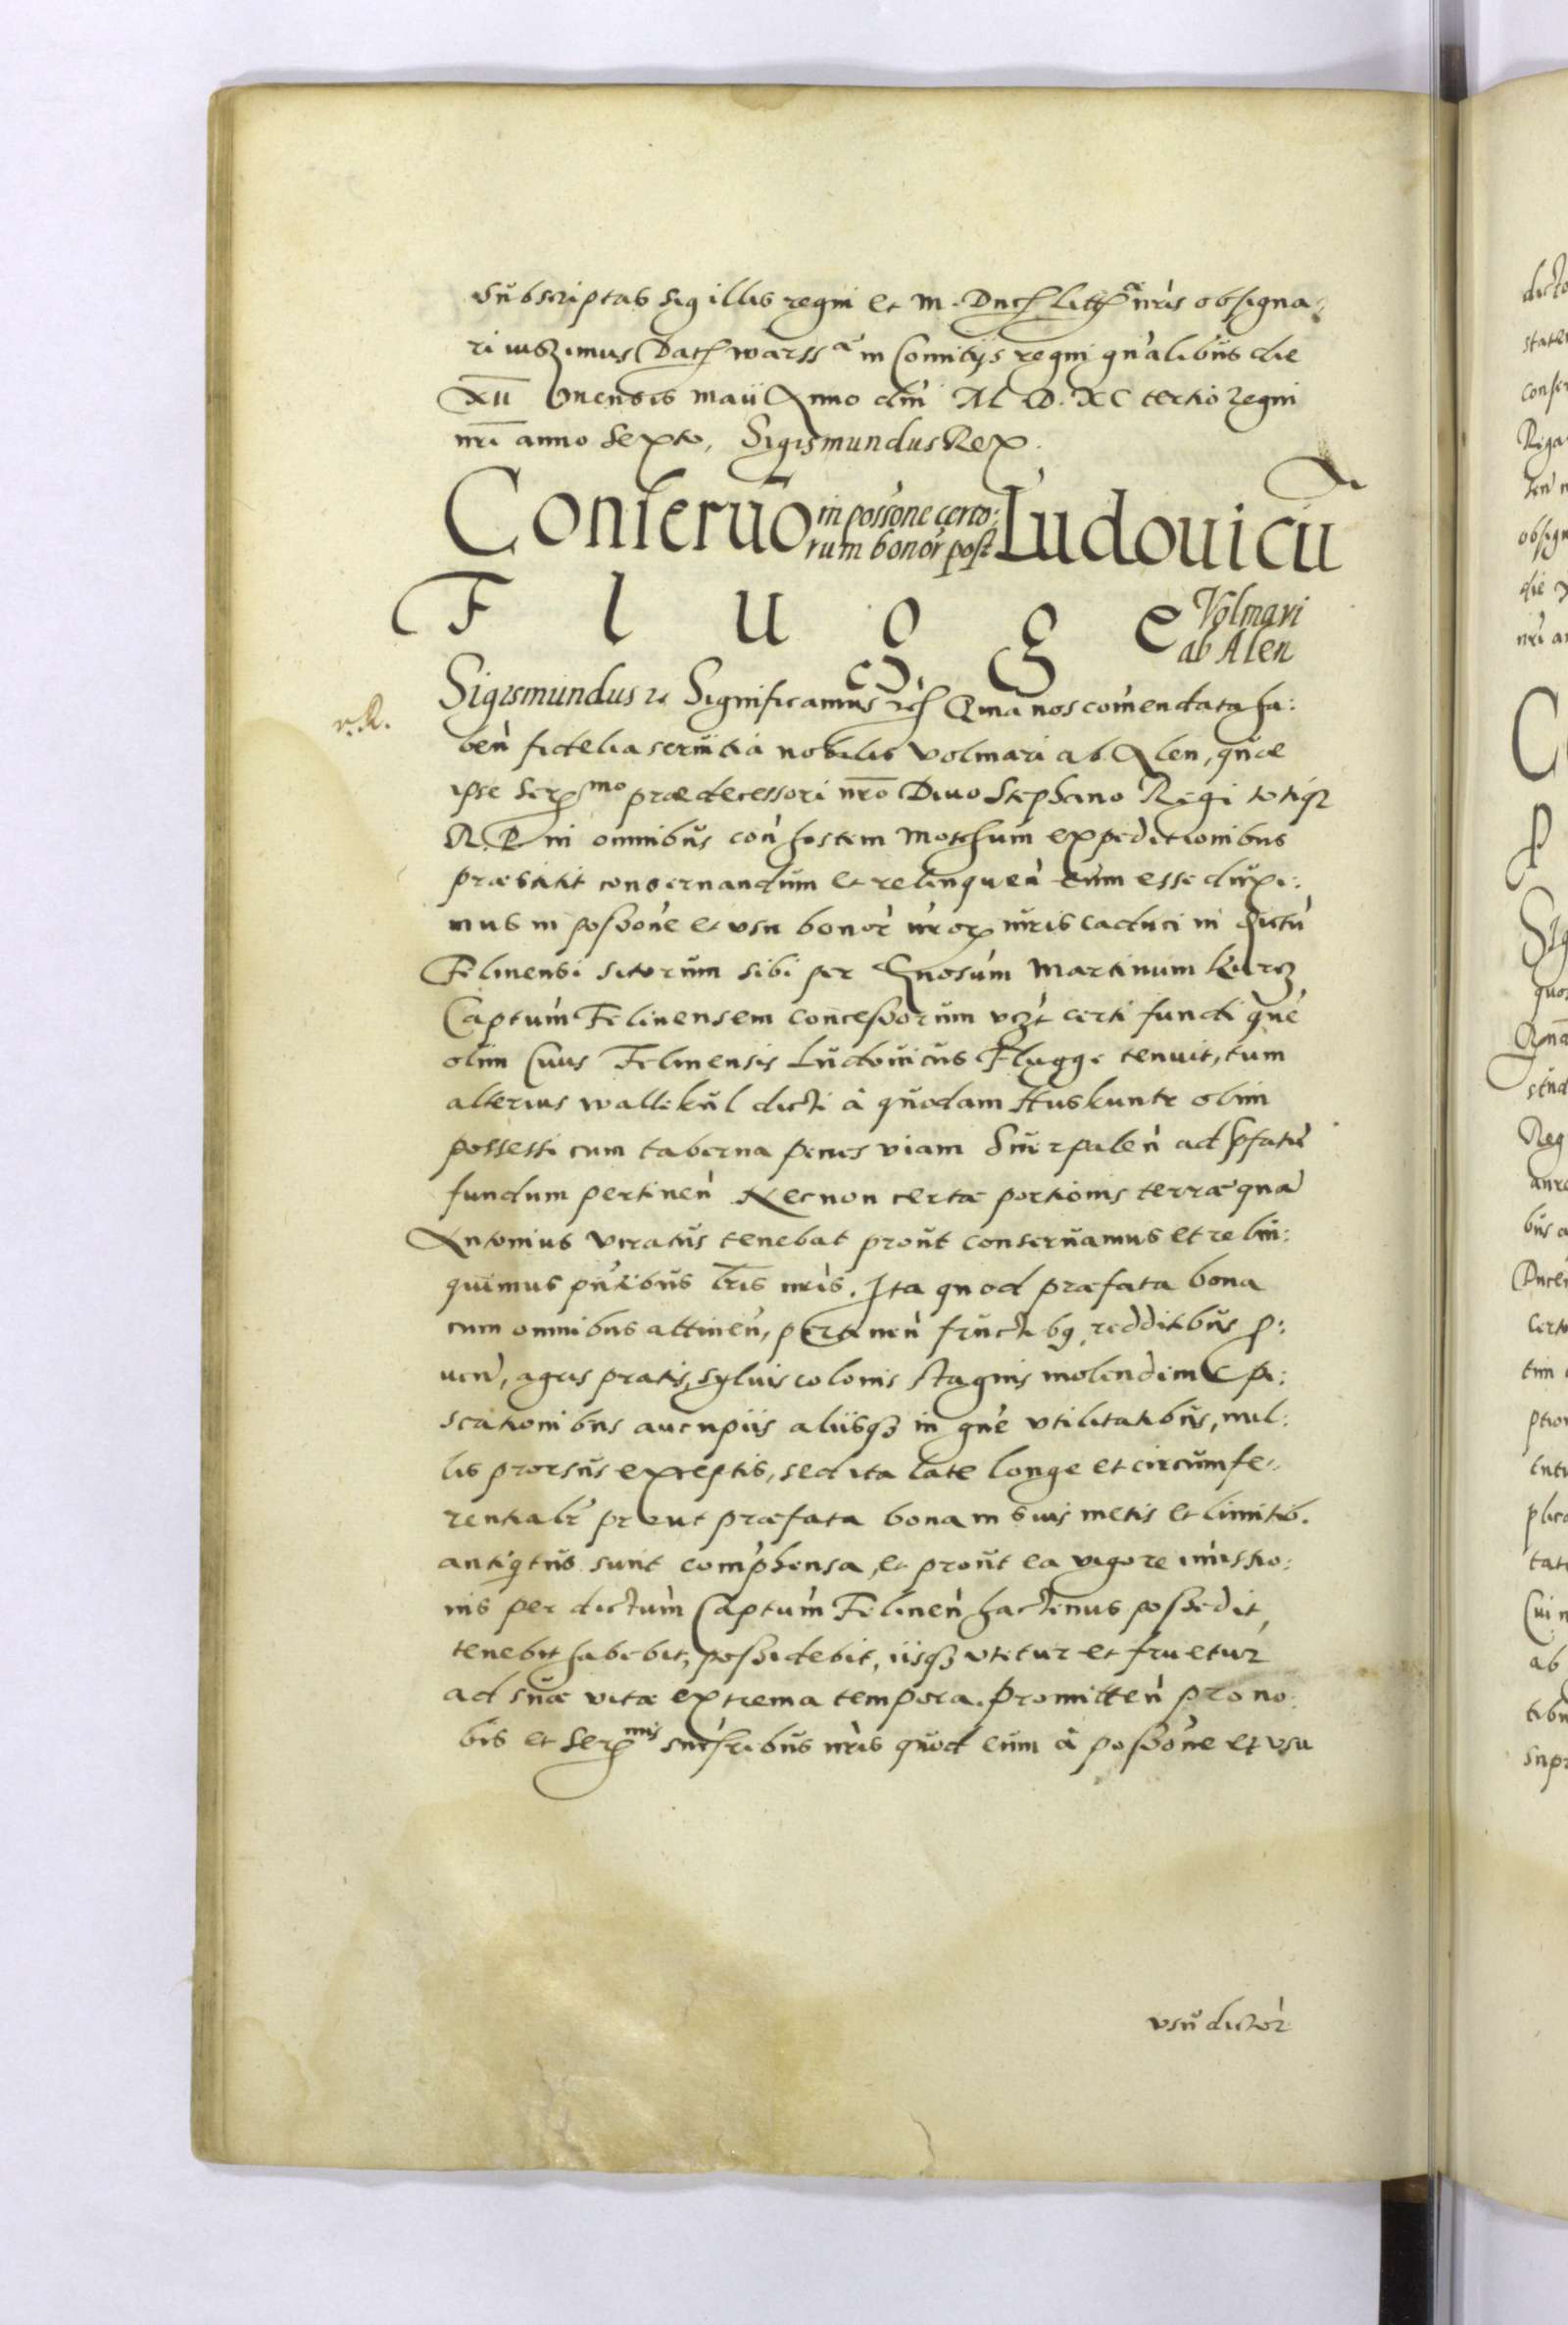 subscriptas sigillis regni et M. Duc. Litt. nris obsigna:
ri iussimus Dat. Warss. in Comitijs regni gn'alibus die
XII mensis Maii Anno dni M. D. XC tertio Regni
nri anno Sexto, Sigismundus Rex.
Conseruo in possone certo: Ludouicu
rum bonor post
F l u g g e Volmari
ab Alen
Sigismundus etc Significamus etc Qma nos comendata ha:
r. R.
ben fidelia seruitia nobilis Volmari ab Alen, quae
ipse Ser.mo praedecessori nro Diuo Stephano Regi totiq
R. P. in omnibus con hostem Moschum expeditionibus
praestitit conseruandum et relinquen eum esse duxi:
mus in possone et usu bonor nror iuris caduci in dictu
Felinensi sitorum sibi per Gnosum Martinum Kurcz
Captum Felinensem concessorum uczt certi fundi que
olim Ciuis Felinensis Ludouicus Flugge tenuit, tum
alterius Wallekul dicti à quodam Huskunte olim
possessi cum taberna penes viam Suerpalen ad pfatu
fundum pertinen Necnon certae portionis terrae qua
Antonius Viratus tenebat prout conseruamus et relin:
quimus pntibus lris nris. Ita quod praefata bona
cum omnibus attinen, pertinen fructibq redditibus p:
uen, agris pratis, syluis colonis stagnis molendin pi:
scationibus aucupiis aliisq in gne utilitatibus, nul:
lis prorsus exceptis, sed ita late longe et circumfe:
rentialr prout praefata bona in suis metis et limitib.
antiqtus sunt comphensa, et prout ea vigore imissio:
nis per dictum Captum Felinen hactenus possedit,
tenebit habebit, possidebit, iisq utetur et fruetur
ad suae vitae extrema tempora. Promitten pro no:
bis et Ser.mis succribus nris quod eum à possone et usu
usu dictor